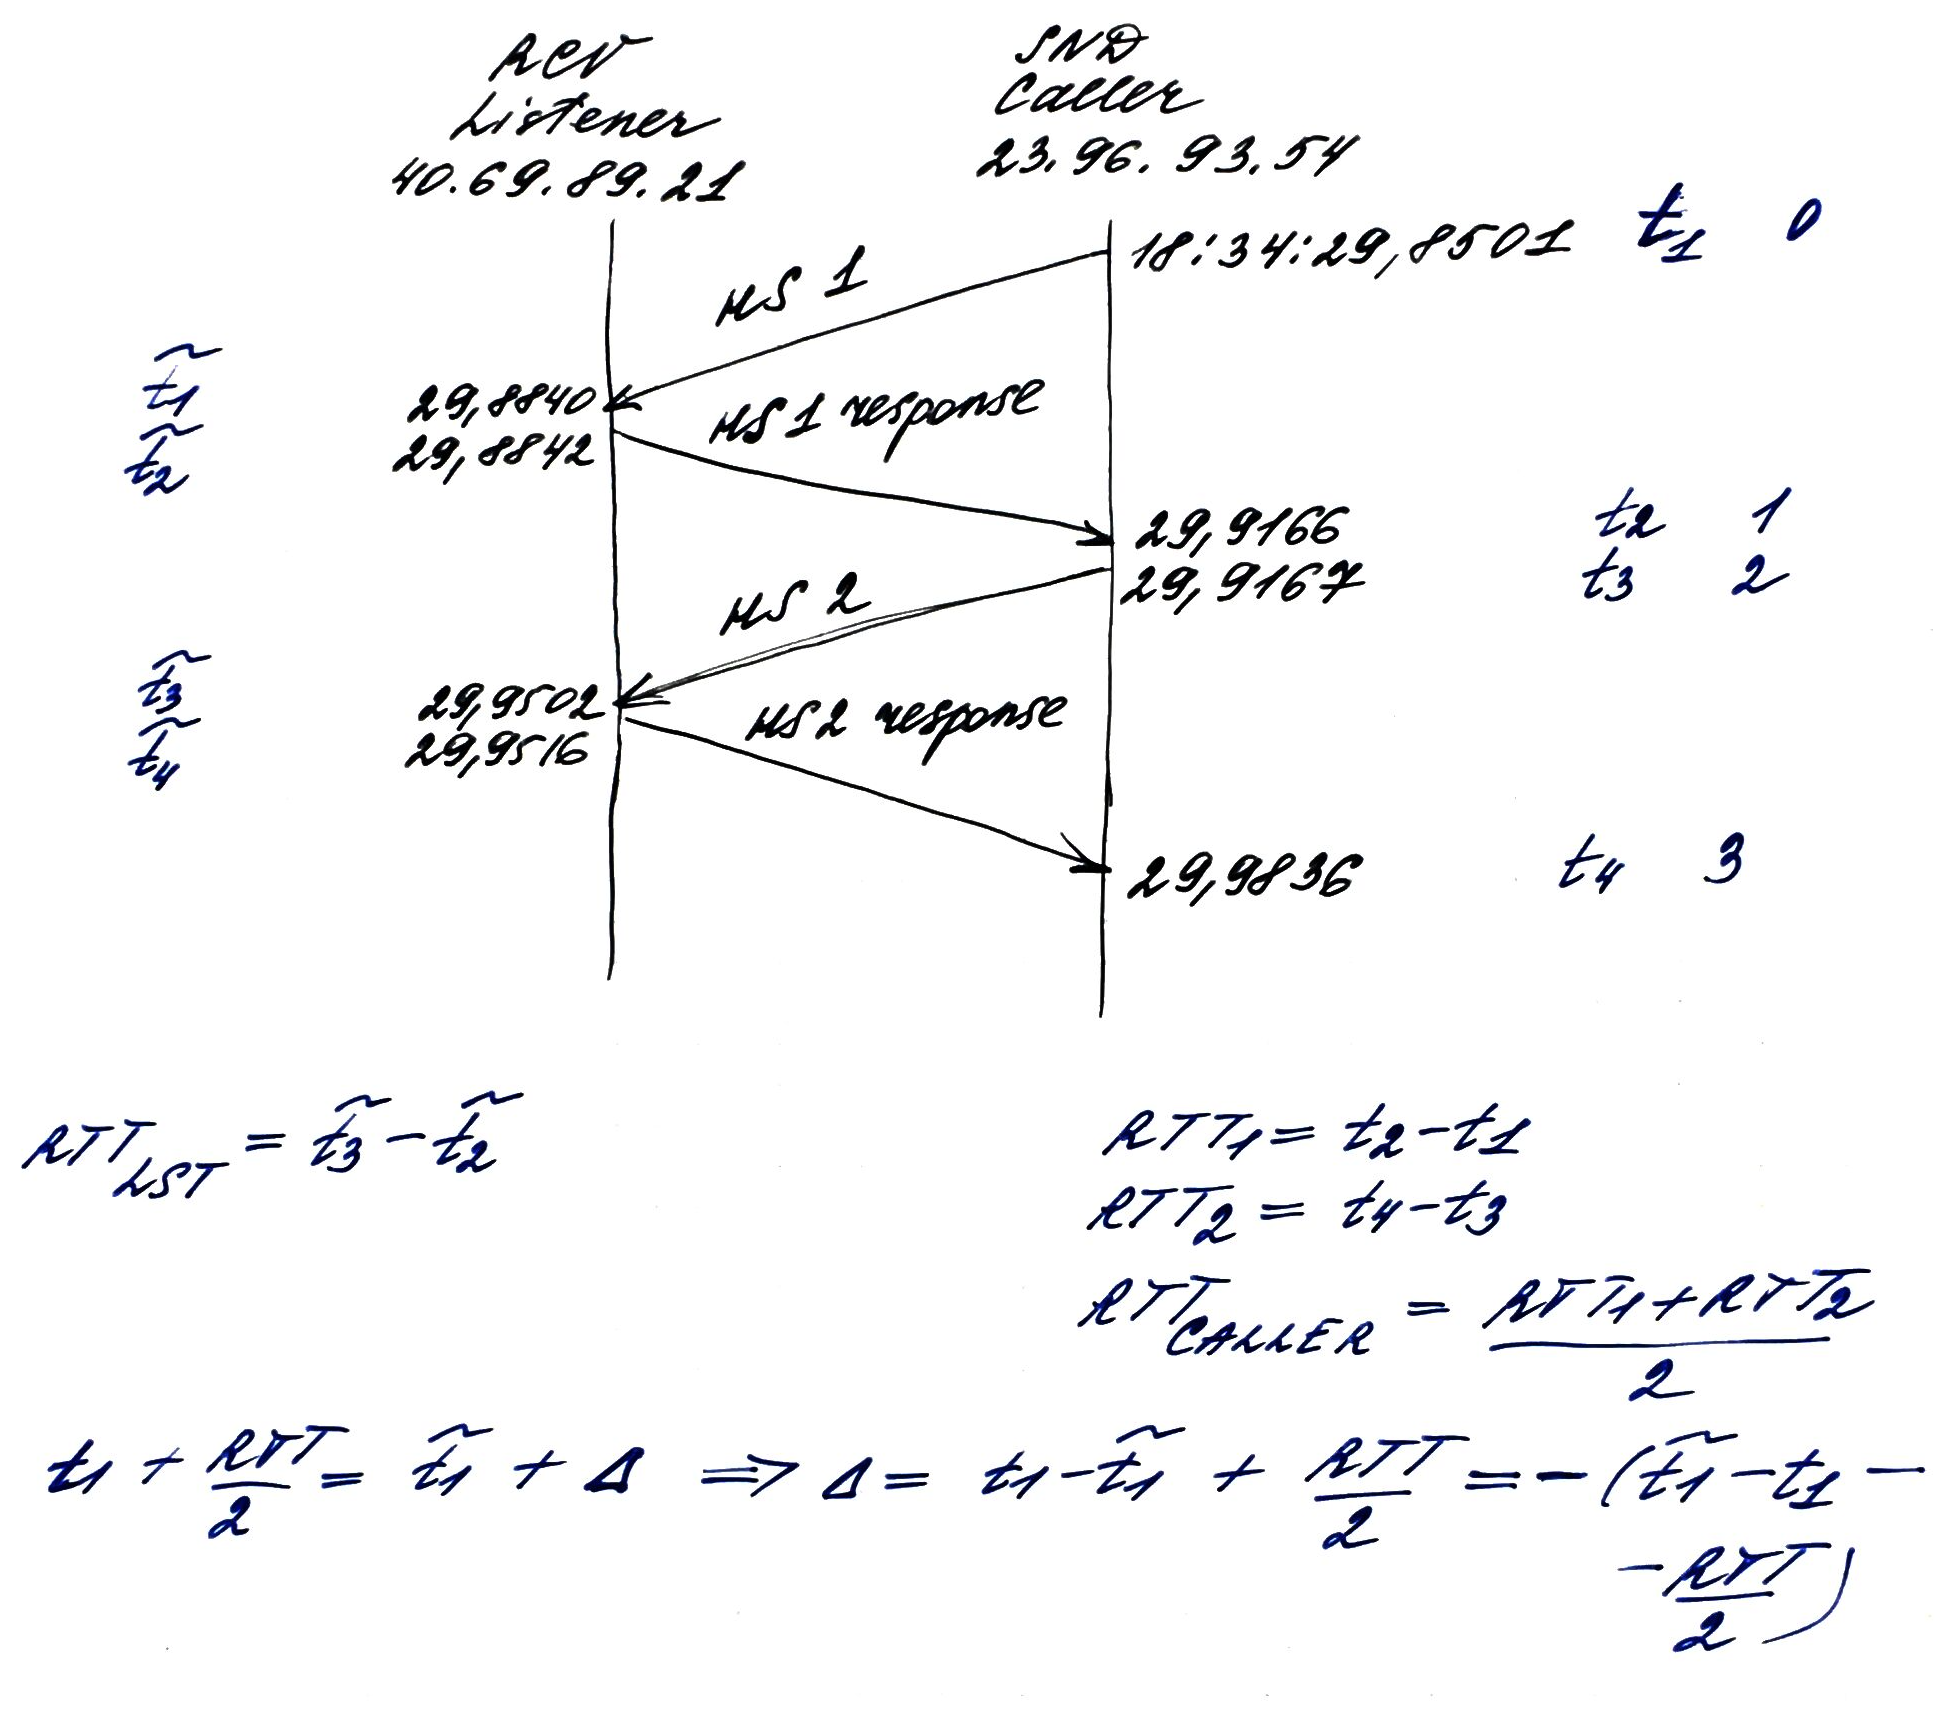 RCV
Listener
40.69.89.21
SND
Caller
23.96.93.54
18:34:29,8501 t1 0
HS 1
t̃1 29,8840
HS1 response
t̃2 29,8842
29,9166 t2 1
29,9167 t3 2
HS 2
t̃3 29,9502
HS2 response
t̃4 29,9516
29,9836 t4 3
RTT_LST = t̃3 - t̃2
RTT1 = t2 - t1
RTT2 = t4 - t3
RTT_CALLER = (RTT1 + RTT2) / 2
t1 + RTT/2 = t̃1 + Δ => Δ = t1 - t̃1 + RTT/2 = - (t̃1 - t1 -
- RTT/2)